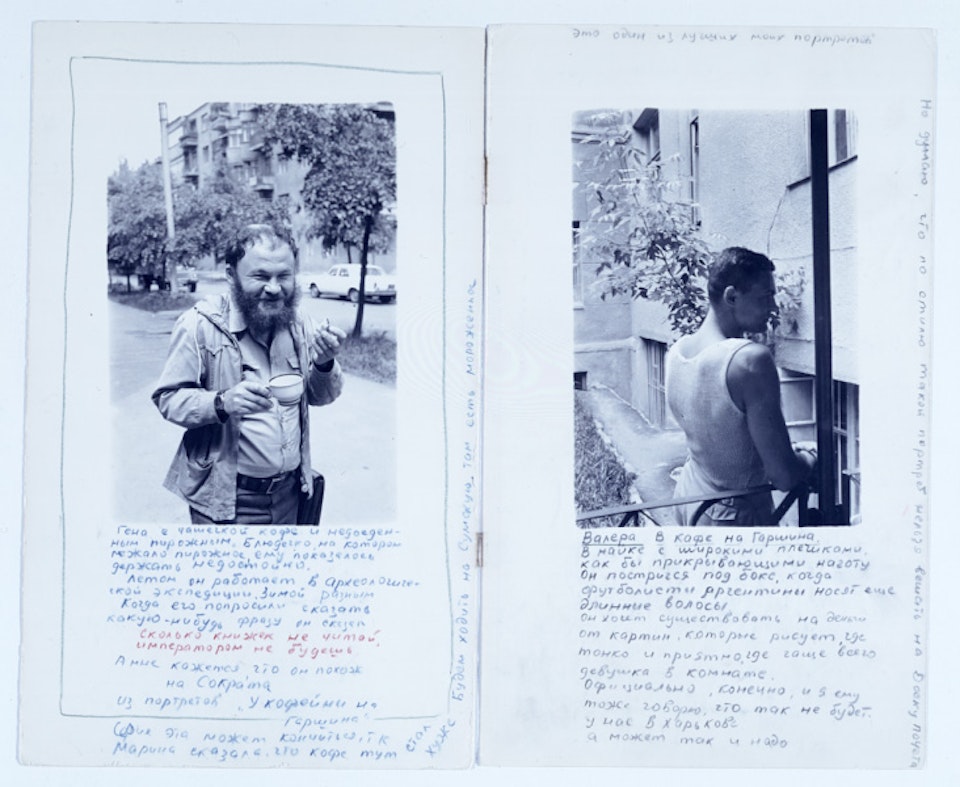 Гена с чашечкой кофе и недоеден-
ным пирожным. Блюдечко на котором
лежало пирожное, ему показалось
держать недостойно.
Летом он работает в археологиче-
ской экспедиции. Зимой разным
Когда его попросили сказать
какую-нибудь фразу он сказал
Сколько книжек не читай,
императором не будешь.
А мне кажется что он похож
на Сократа
из портретов "У кофейни на
Гаршина"
Серия эта может кончиться, т.к
Марина сказала, что кофе тут
стал
хуже. Будем ходить на Сумскую, там есть мороженное
это один из лучших моих портретов
Валера В кафе на Гаршина.
В майке с широкими плечиками,
как бы прикрывающими наготу
Он постригся под бокс, когда
футболисты Аргентины носят еще
длинные волосы.
он хочет существовать на деньги
от картин, которые рисует, где
тонко и приятно, где чаще всего
девушка в комнате.
Официально, конечно, и я ему
тоже говорю, что так не будет.
у нас в Харькове
а может так и надо
Но думаю, что по стилю такой портрет нельзя вешать на Доску почета